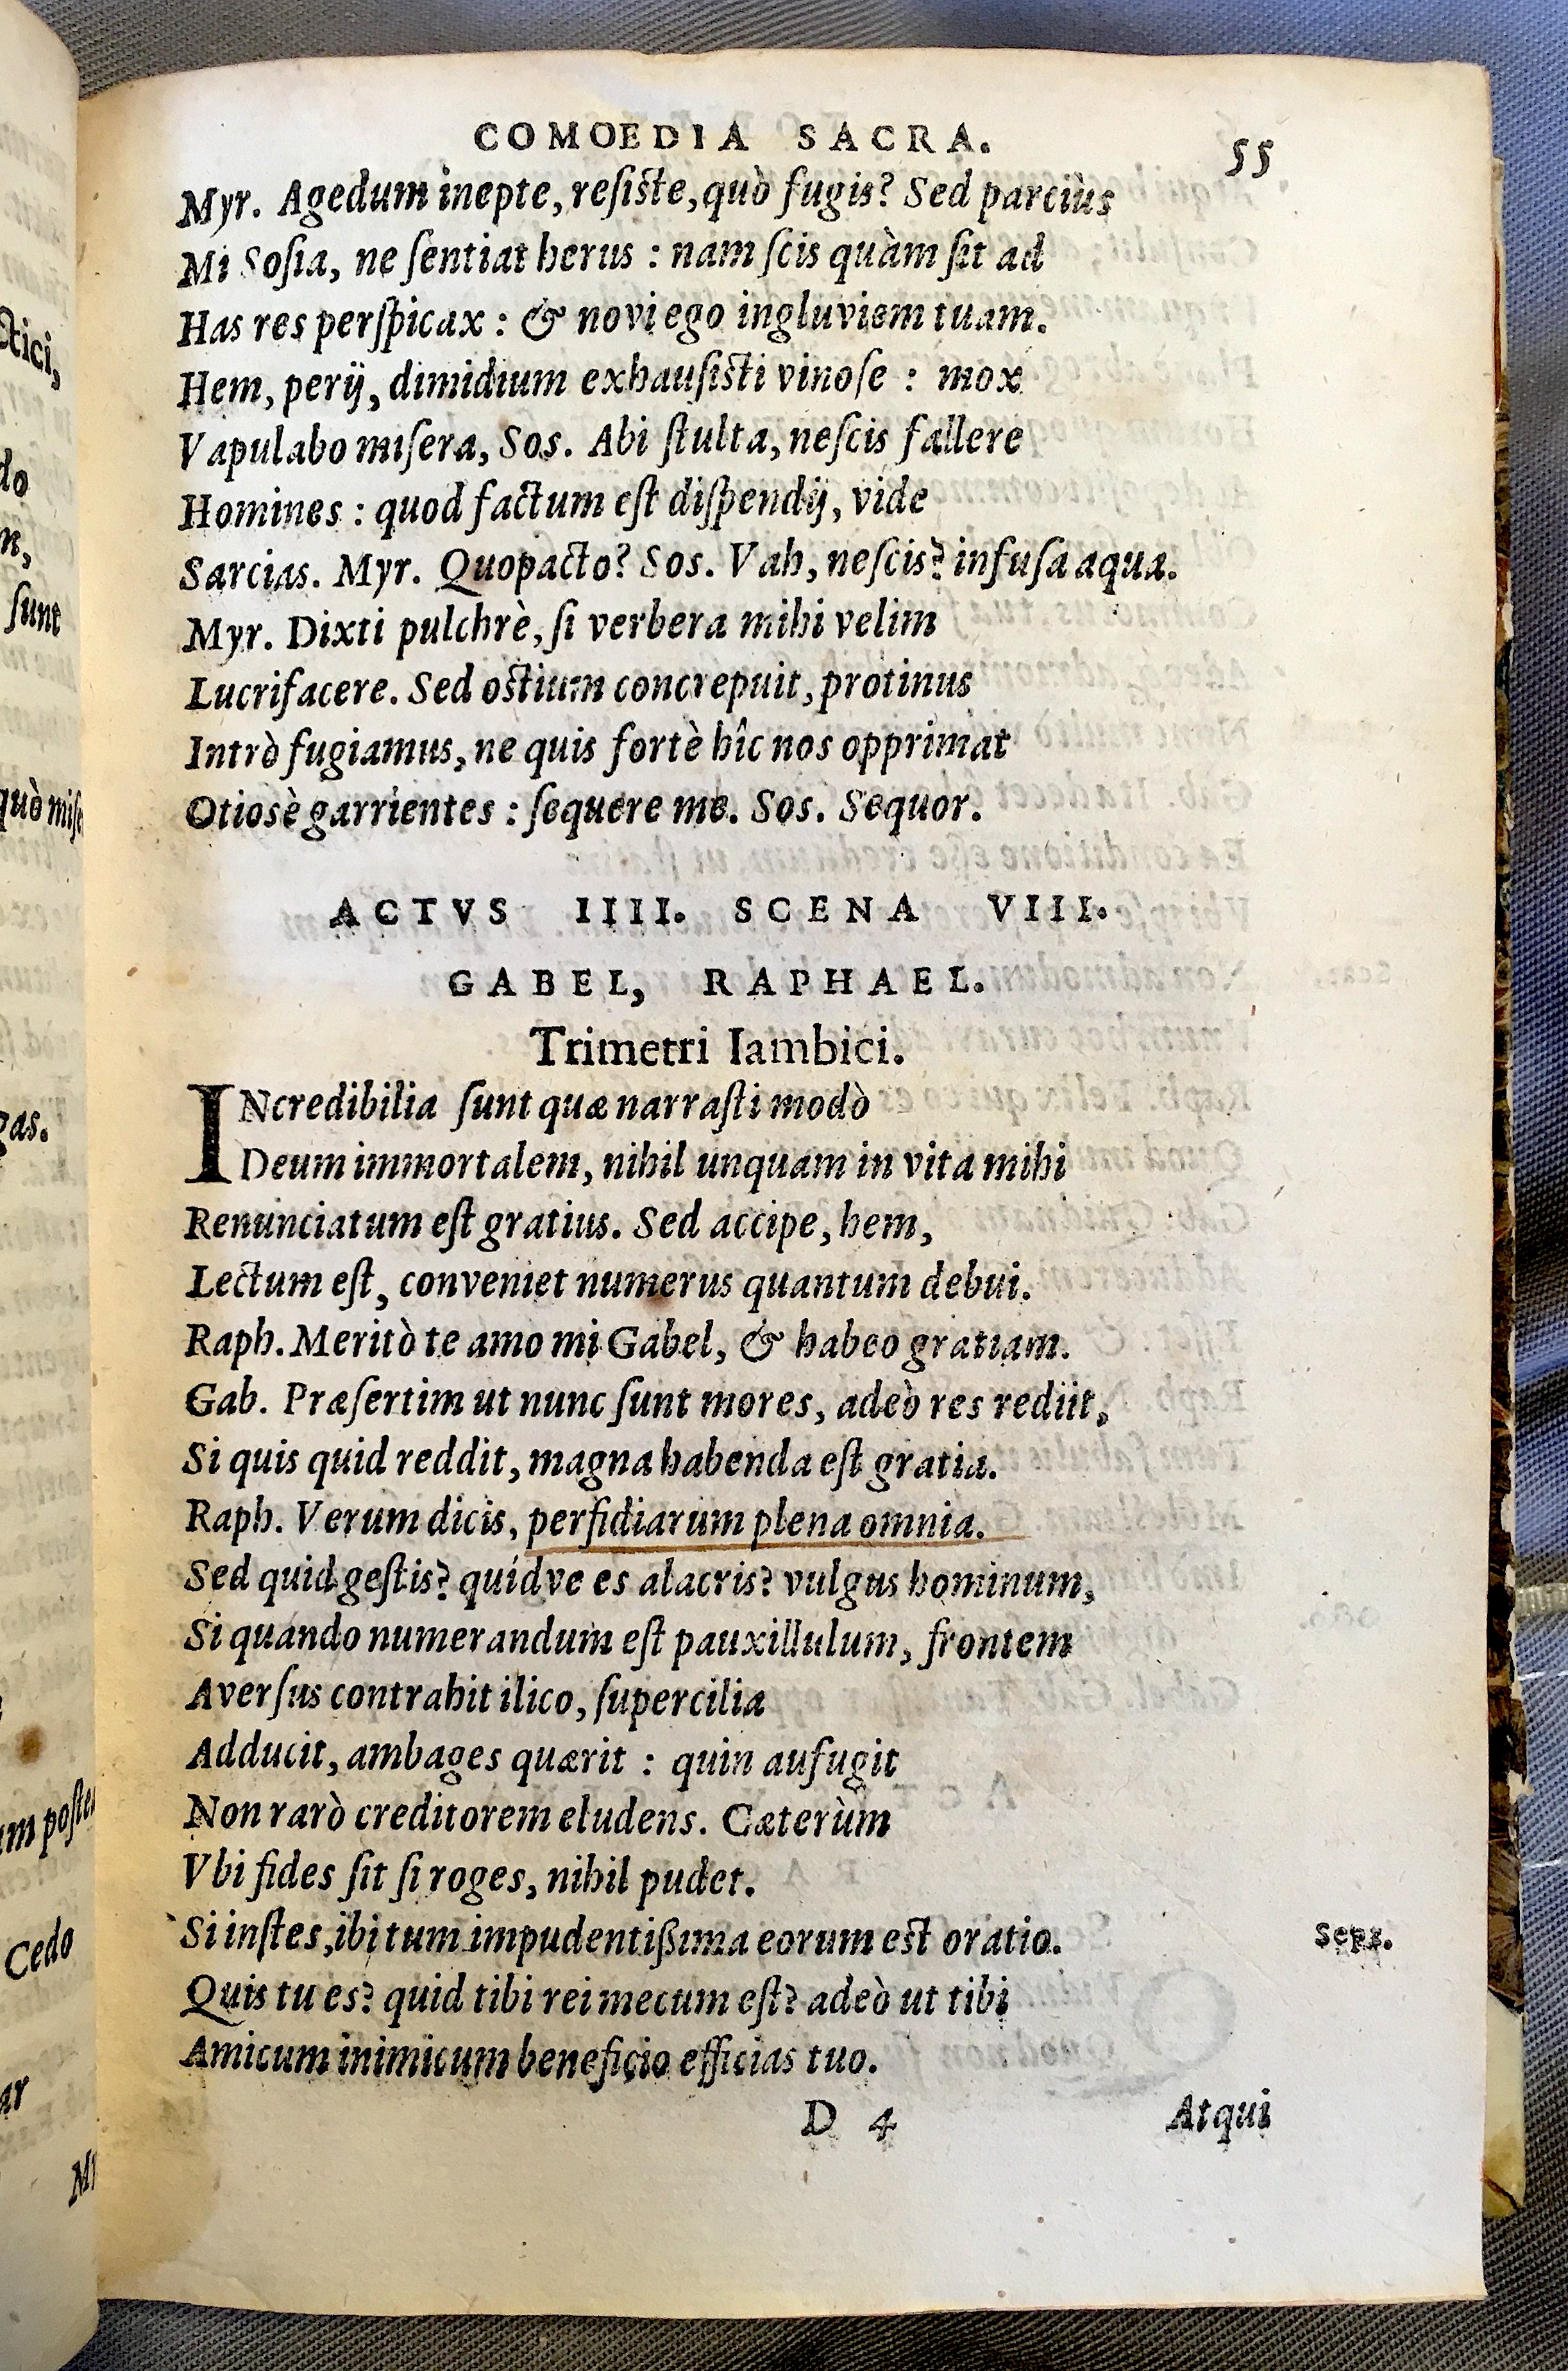 COMOEDIA SACRA. 55
Myr. Agedum inepte, reſiſte, quò fugis? Sed parciùs
Mi Soſia, ne ſentiat herus : nam ſcis quàm ſit ad
Has res perſpicax : & novi ego ingluviem tuam.
Hem, perij, dimidium exhauſiſti vinoſe : mox
Vapulabo miſera, Sos. Abi ſtulta, neſcis fallere
Homines : quod factum eſt diſpendij, vide
Sarcias. Myr. Quopacto? Sos. Vah, neſcis? infuſa aqua.
Myr. Dixti pulchrè, ſi verbera mihi velim
Lucrifacere. Sed oſtium concrepuit, protinus
Intrò fugiamus, ne quis fortè hîc nos opprimat
Otiosè garrientes : ſequere me. Sos. Sequor.
ACTVS IIII. SCENA VIII.
GABEL, RAPHAEL.
Trimetri Iambici.
INcredibilia ſunt quæ narraſti modò
Deum immortalem, nihil unquam in vita mihi
Renunciatum eſt gratius. Sed accipe, hem,
Lectum eſt, conveniet numerus quantum debui.
Raph. Meritò te amo mi Gabel, & habeo gratiam.
Gab. Præſertim ut nunc ſunt mores, adeò res rediit,
Si quis quid reddit, magna habenda eſt gratia.
Raph. Verum dicis, perfidiarum plena omnia.
Sed quid geſtis? quidve es alacris? vulgus hominum,
Si quando numerandum eſt pauxillulum, frontem
Averſus contrahit ilico, ſupercilia
Adducit, ambages quærit : quin aufugit
Non rarò creditorem eludens. Cæterùm
Vbi fides ſit ſi roges, nihil pudet.
Si inſtes, ibi tum impudentißima eorum eſt oratio. Seps.
Quis tu es? quid tibi rei mecum eſt? adeò ut tibi
Amicum inimicum beneficio efficias tuo.
D 4 Atqui
ctici,
do
n,
ſunt
quò miſe
gas.
um poſte
Cedo
ar